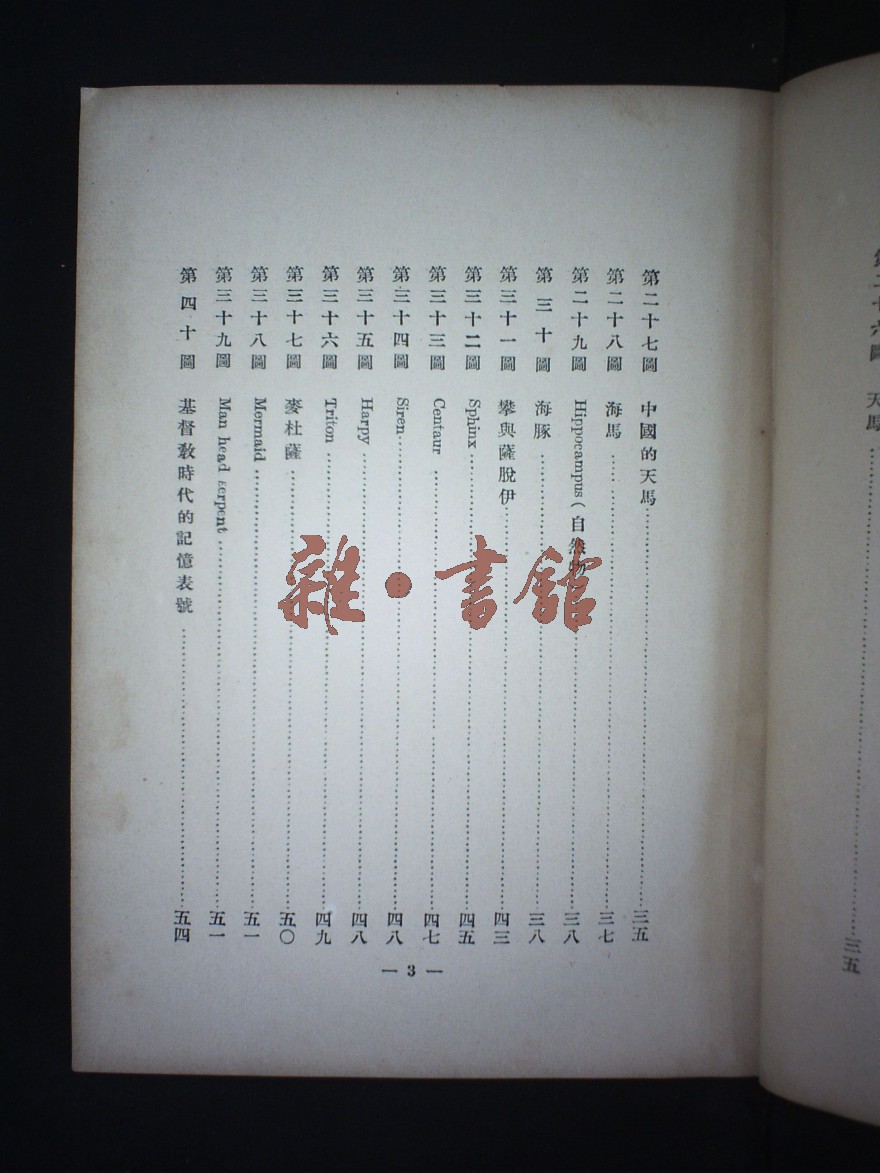 第二十六圖 天馬……三五
第二十七圖 中國的天馬……三五
第二十八圖 海馬……三七
第二十九圖 Hippocampus(自然物……三八
第三十圖 海豚……三八
第三十一圖 攀與薩脫伊……四三
第三十二圖 Sphinx……四五
第三十三圖 Centaur……四七
第三十四圖 Siren……四八
第三十五圖 Harpy……四八
第三十六圖 Triton……四九
第三十七圖 麥杜薩……五〇
第三十八圖 Mermaid……五一
第三十九圖 Man head serpent……五一
第四十圖 基督教時代的記憶表號……五四
— 3 —
雜·書館